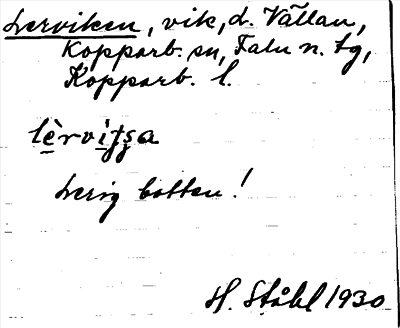 Lerviken, vik, d. Vällan,
Kopparb. sn, Falu n. tg,
Kopparb. l.
lèrvitsa
Lerig botten!
H. Ståhl 1930